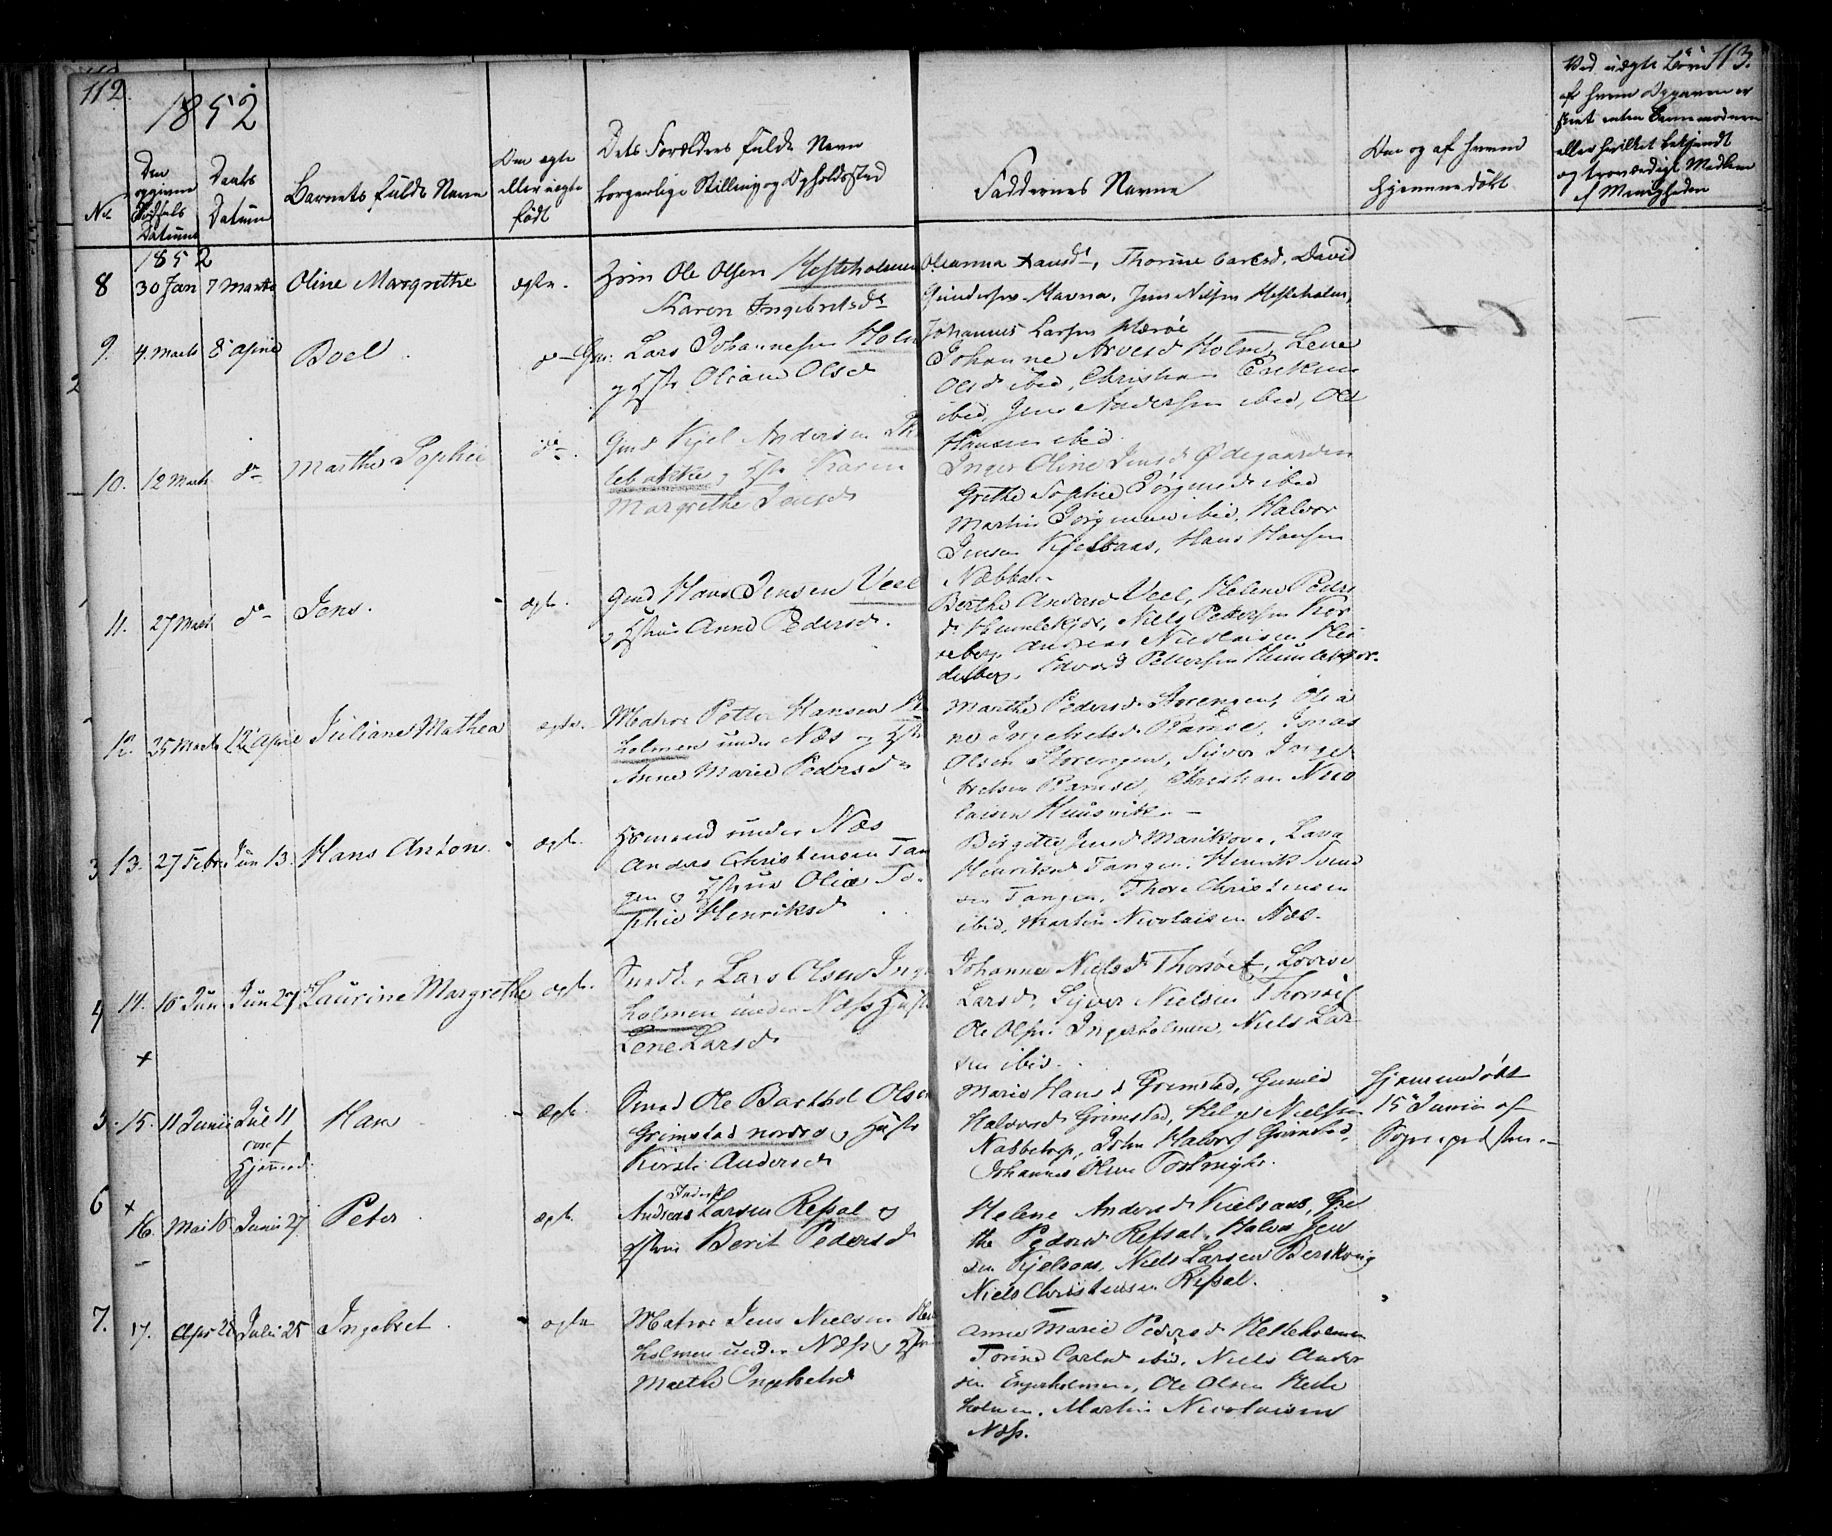 112
113.
1852
No
Den opgivne Fødsels Datum
Daabs Datum
Barnets fulde Navn
Om ægte eller uægte født
Dets Forældres fulde Navn borgerlige Stilling og Opholdssted
Faddernes Navne
Om og af hvem hjemmedøbt
Ved uægte Børn
af hvem Opgaven er
skeet enten
eller hvilket bekjendt
og troværdigt Medlem
af Menigheden
1852
8 30 Jan 7 Marts Oline Margrethe ægte.
Ole Olsen Hesteholmen
Karen Ingebretsdr
Oleanna Hansdr, Thorine Carlsd. David
Gundersen Havna, Jens Nilsen Hesteholm,
Johannes Larsen Mærøe
9. 4 Marts 8 April Boel do
Gm: Lars Johannesen Holm
og Hstr Oliane Olsd
Johanne Arvesd Holm, Lene
Olsd ibid, Christian Eriksen
ibid, Jens Andersen ibid, Ole
Hansen ibid.
10. 12 Marts do Marthe Sophie do
Gmd Kjel Andersen
lebakke, og Hstr Karen
Margrethe Jensd
Inger Oline Jensd Ødegaarden
Grethe Sophie Jørgensd ibid
Martin Jørgensen ibid, Halvor
Jensen Kjelsaas, Hans Hansen
11. 27 Marts do Jens. ægte.
Gmd Hans Jensen Veel
og Hstrue Anne Pedersd.
Berthe Andersd Veel, Helene Peders
d Humlekjær, Niels Pettersen
Andreas Nicolaisen
Edvard Pettersen Humlekjær.
12. 25 Marts 12 April Juliane Mathea ægte.
Matros Petter Hansen
holmen under Næs og Hstr
Anne Marie Pedersd
Marthe Pedersd Storengen, Olia
ne Ingebretsd Ramsø, Jonas
Olsen Storengen, Siver Inge
bretsen Ramsø, Christian Nico
laisen Huusvik.
3 13. 27 Febr. Jun 13. Hans Anton ægte.
Hsmand under Næs
Anders Christensen Tan
gen og Hstrue Olia So-
phie Henriksd
Birgitte Jensd Marikove, Lava
Henriksd Tangen, Henrik Svend
sen Tangen, Thore Christensen
ibid, Martin Nicolaisen Næs.
4 14. 16 Jun Jun 27 Laurine Margrethe ægte.
Lars Olsen Inger
holmen under Næs og Hustr
Lene Larsd
Johanne Nielsd Thorsøe, Lovise
Larsd, Syver Nielsen Thorsøe
Ole Olsen Ingerholmen, Niels Lar-
sen ibid.
+
5. 15. 11 Junii Jul 11 Hans ægte.
conf
hjemmed.
Smed Ole Barthol Olsen
Grimstad nordre og Hustr
Kirsti Andersd
Marie Hansd Grimstad, Gunild
Halvorsd Grimstad, Helge Nielsen
Nabbetorp, John Halvors Grimstad,
Johannes Olsen
hjemmedøbt
15de Junii af
Sognepræsten.
6 + 16. Mai 16 Junii 27 Peter ægte.
Inderst
Andreas Larsen Refsal og
Hstrue Berit Pedersd
Helene Andersd Kielsaas, Gre
the Pedersd Refsal, Halvor Jen
sen Kjelsaas, Niels Larsen
Niels Christensen Refsal.
7. 17. Apr 28 Julii 25 Ingebret ægte
Matros Jens Nielsen Heste
holmen under Næs og Hstrue
Marthe Ingebretsd
Anne Marie Pedersd Hesteholmen
Torine Carlsd ibid, Niels Ander
sen Engerholmen, Ole Olsen Heste
holmen, Martin Nicolaisen
Næs.